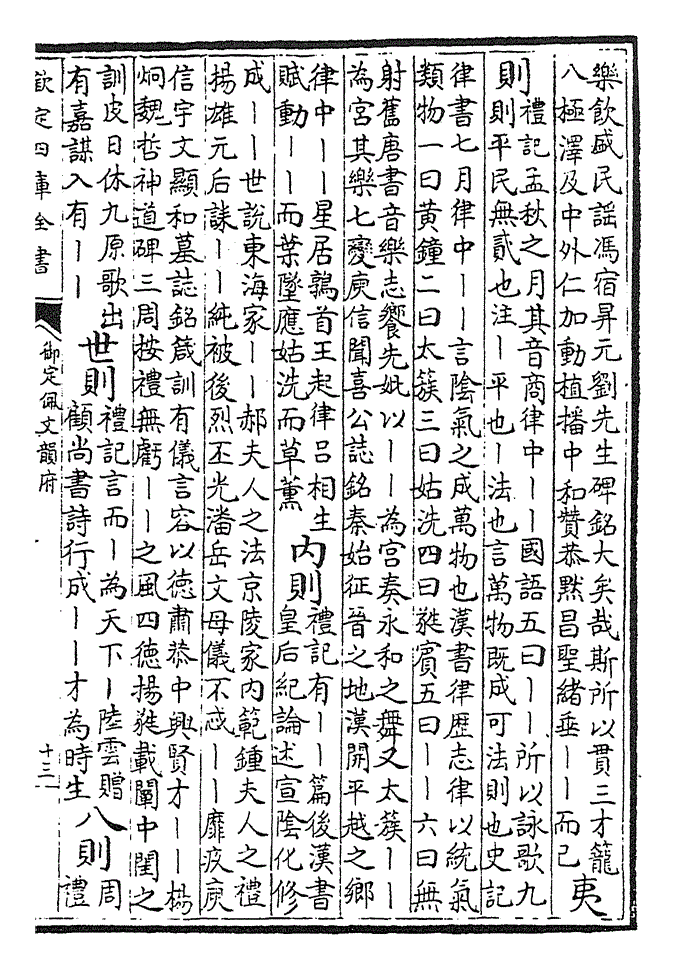 樂飲盛民謡馮宿昇元劉先生碑銘大矣哉斯所以貫三才籠
八極澤及中外仁加動植播中和賛恭黙昌聖緒垂丨丨而已
夷
則
禮記孟秋之月其音商律中丨丨國語五曰丨丨所以詠歌九
則平民無貳也注丨平也丨法也言萬物既成可法則也史記
律書七月律中丨丨言陰氣之成萬物也漢書律歴志律以統氣
類物一曰黄鐘二曰太簇三曰姑洗四曰蕤賓五曰丨丨六曰無
射舊唐書音樂志饗先妣以丨丨為宫奏永和之舞又太簇丨丨
為宫其樂七變庾信聞喜公誌銘秦始征晉之地漢開平越之鄉
律中丨丨星居鶉首王起律吕相生
賦動丨丨而葉墜應姑洗而草薰
内則
禮記有丨丨篇後漢書
皇后紀論述宣陰化修
成丨丨世說東海家丨丨郝夫人之法京陵家内範鍾夫人之禮
揚雄元后誄丨丨純被後烈丕光潘岳文母儀不忒丨丨靡疚庾
信宇文顯和墓誌銘箴訓有儀言容以徳肅恭中興賢才丨丨楊
炯魏哲神道碑三周按禮無虧丨丨之風四徳揚蕤載闡中閨之
訓皮日休九原歌出
有嘉謀入有丨丨
世則
禮記言而丨為天下丨陸雲贈
顧尚書詩行成丨丨才為時生
八則
周
禮
欽定四庫全書
御定佩文韻府
十三